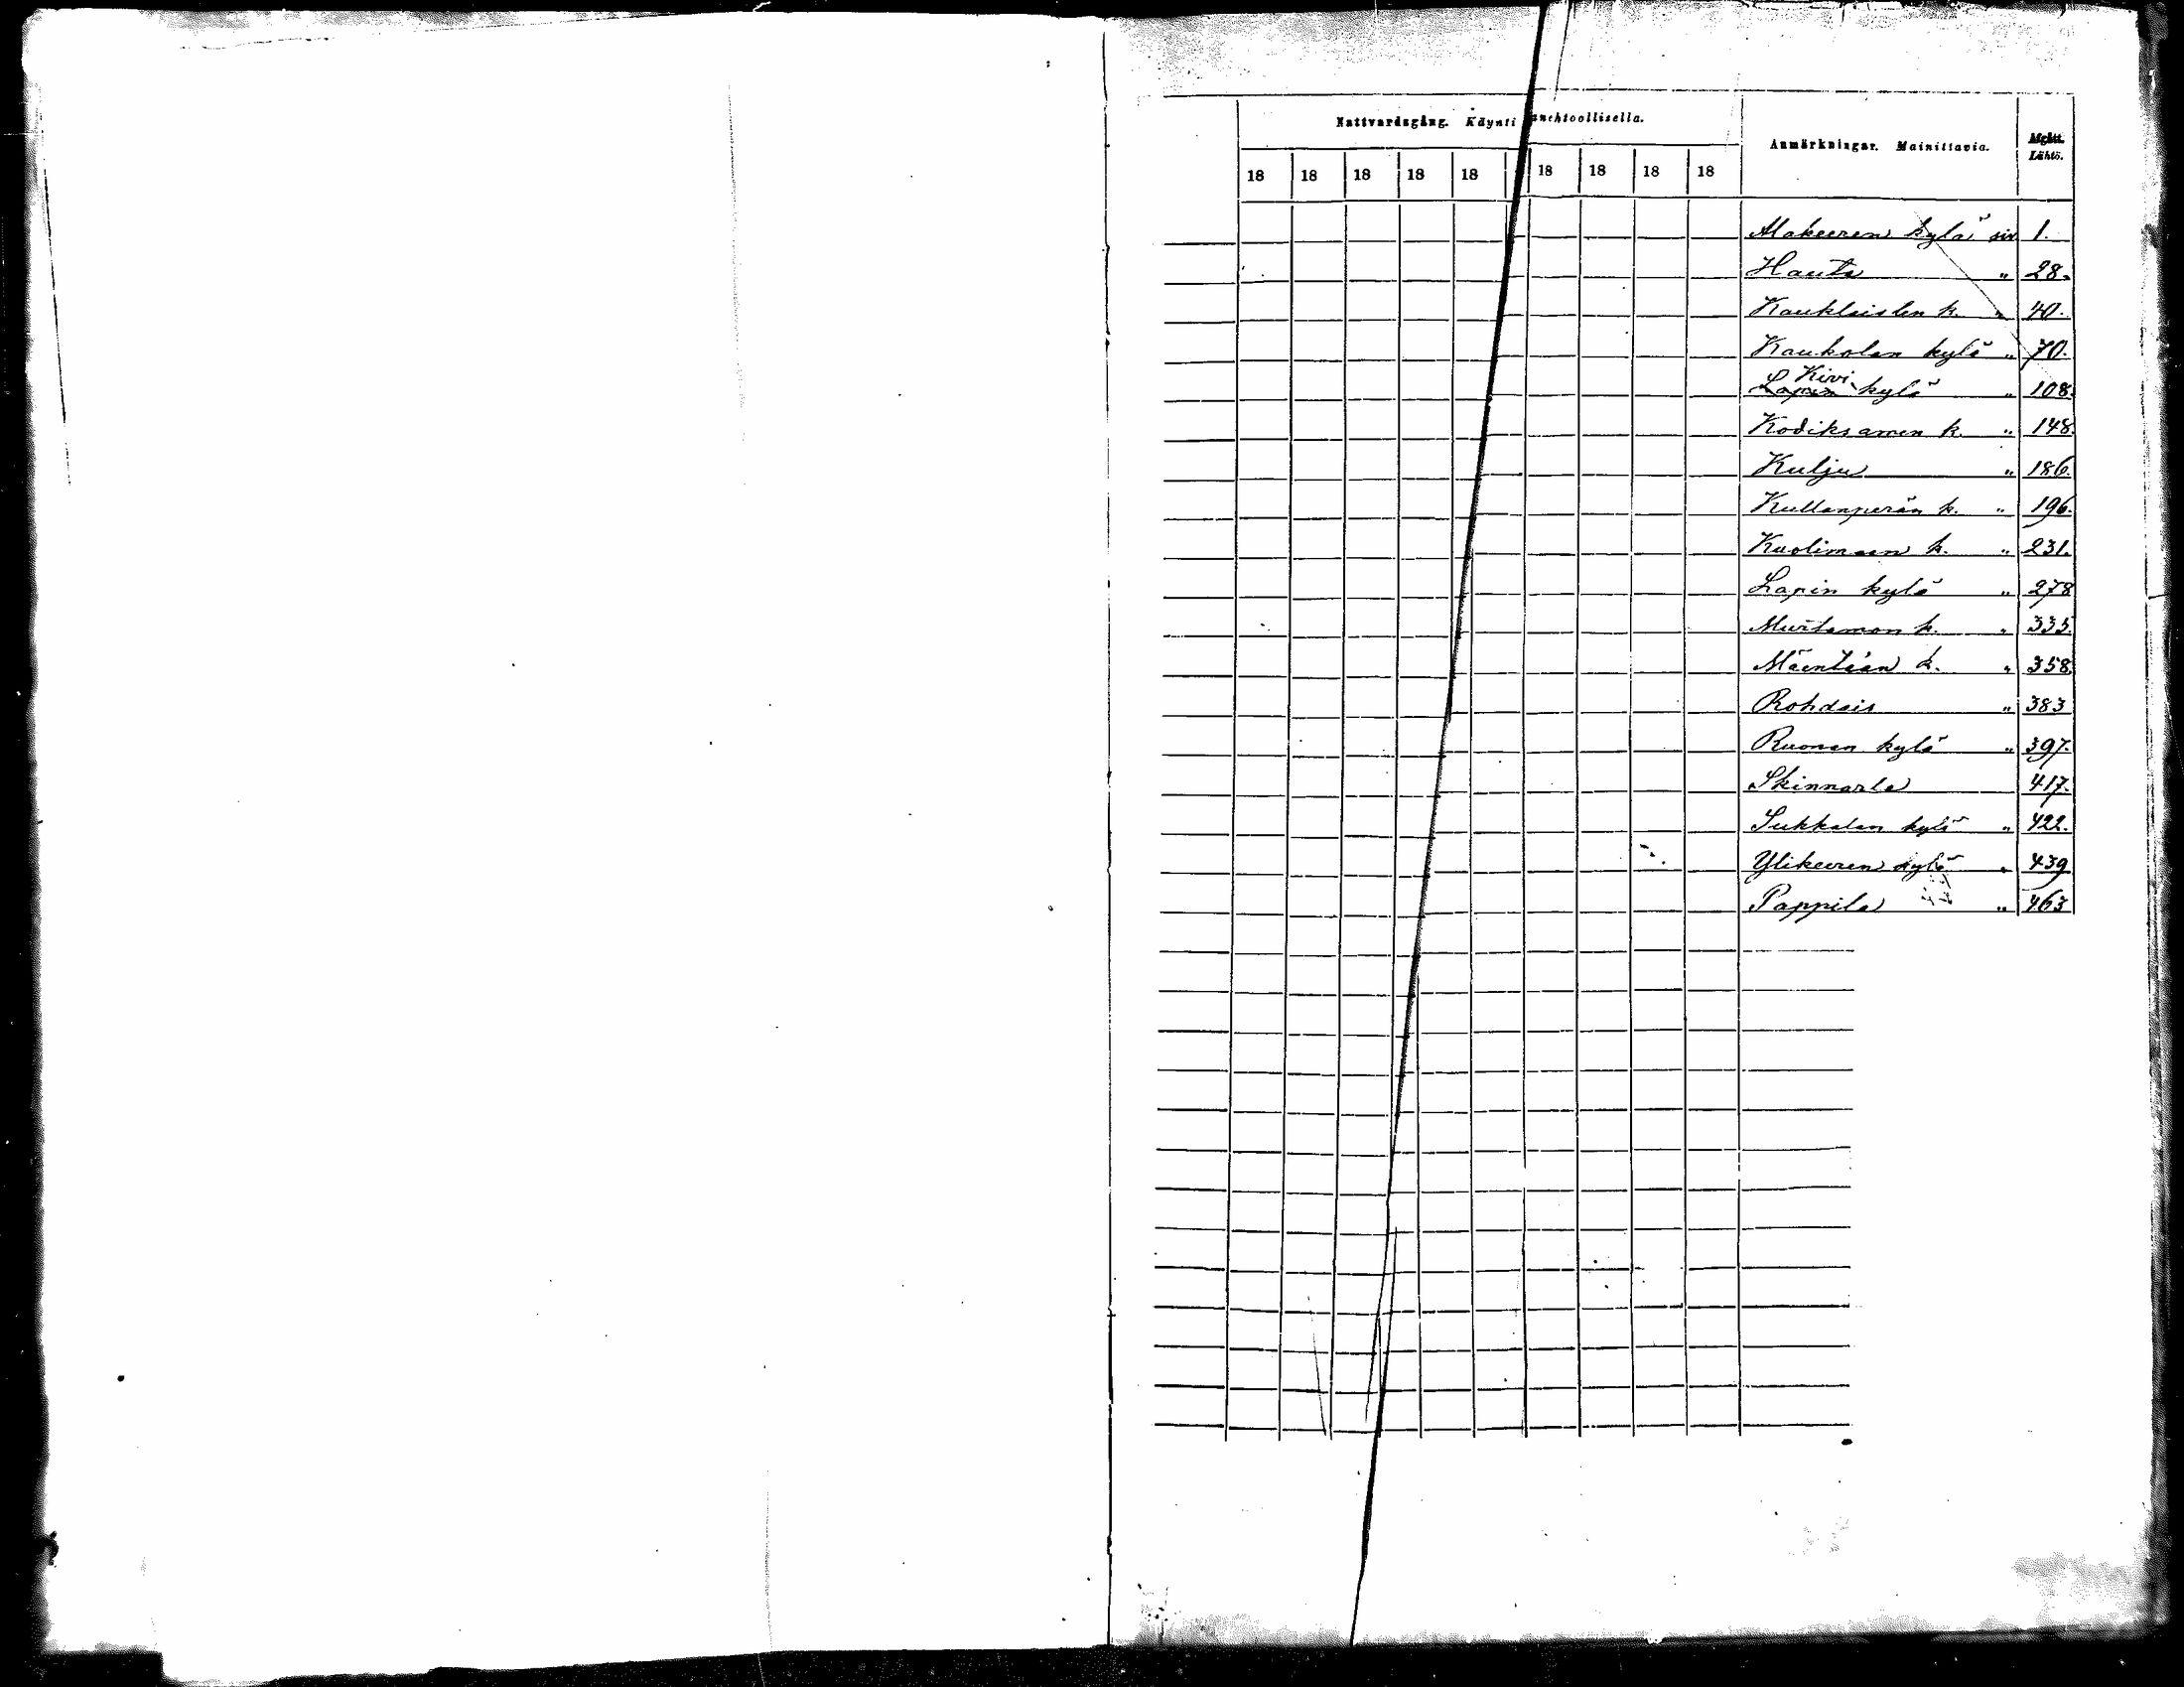 Nattvardsgång. Käynti
Anmärkningar. Mainittavia.
Afgått. Lähtö.
18 18 18 18 18 18 18 18 18
Alakeeren kylä siv. 1.
Hauta " 28.
Kauklaisten k. " 40.
Kaukolan kylä " 70.
Kivi
Lapin kylä " 108.
Kodiksamen k. " 148.
Kulju " 186.
Kullanperän k. " 196.
Kuolimaan k. " 231.
Lapin kylä " 278
Murtamon k. " 335.
Mäentaan k. " 358.
Rohdais " 383
Ruonan kylä " 397.
Skinnarla 417.
Sukkalan kylä " 422.
Ylikeeren kylä " 439
Pappila " 463